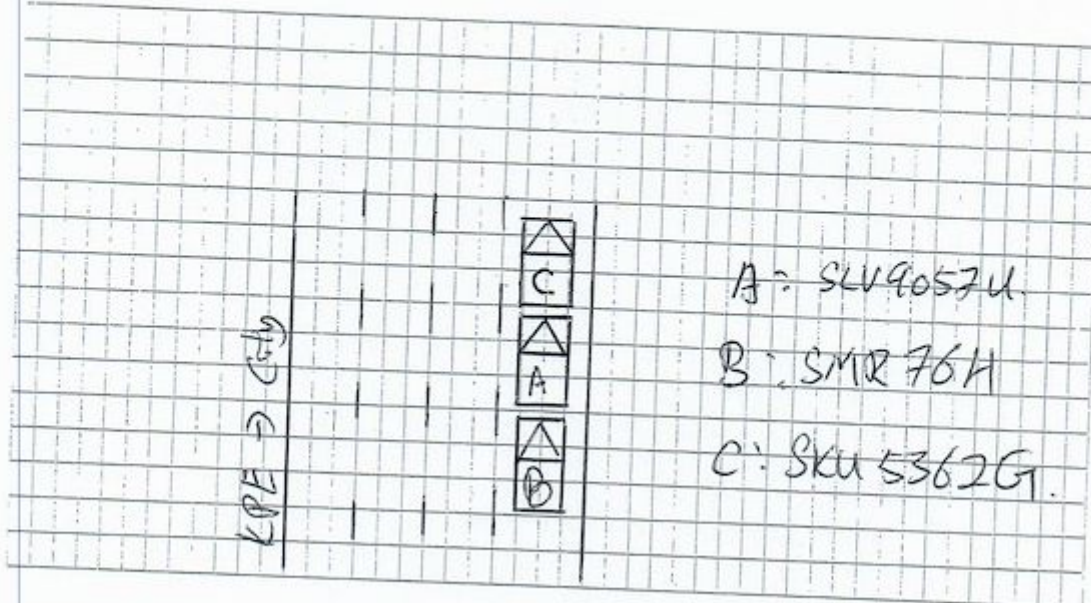 KPE → City
C
A
B
A: SLV9057U.
B: SMR 76H
C: SKU 5362G.